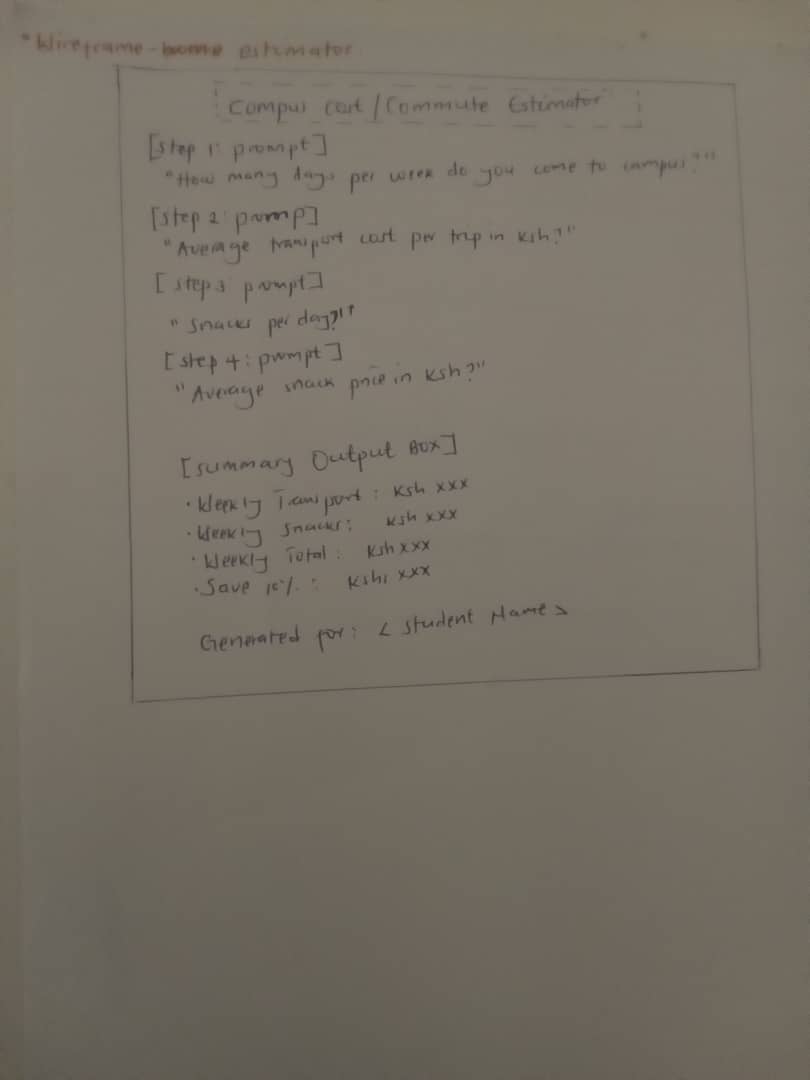 * Wireframe - home estimator
Campus Cost / Commute Estimator
[step 1: prompt]
"How many days per week do you come to campus?"
[step 2: promp]
"Average transport cost per trip in Ksh?"
[step 3 prompt]
"Snacks per day?"
[step 4: prompt]
"Average snack price in Ksh?"
[summary Output Box]
· Weekly Transport : Ksh xxx
· Weekly Snacks : Ksh xxx
· Weekly Total : Ksh xxx
· Save 10% : Ksh, xxx
Generated for: < Student Name >